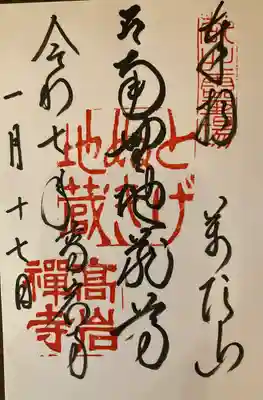 奉拝
萬頂山
地蔵尊
令和七年
高岩寺
一月十七日
とげ
ぬき
地蔵
高岩
禪寺